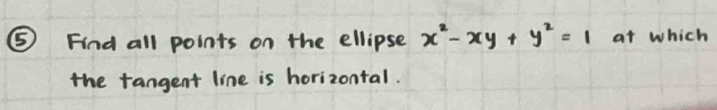 ⑤ Find all points on the ellipse x² - xy + y² = 1 at which
the tangent line is horizontal.